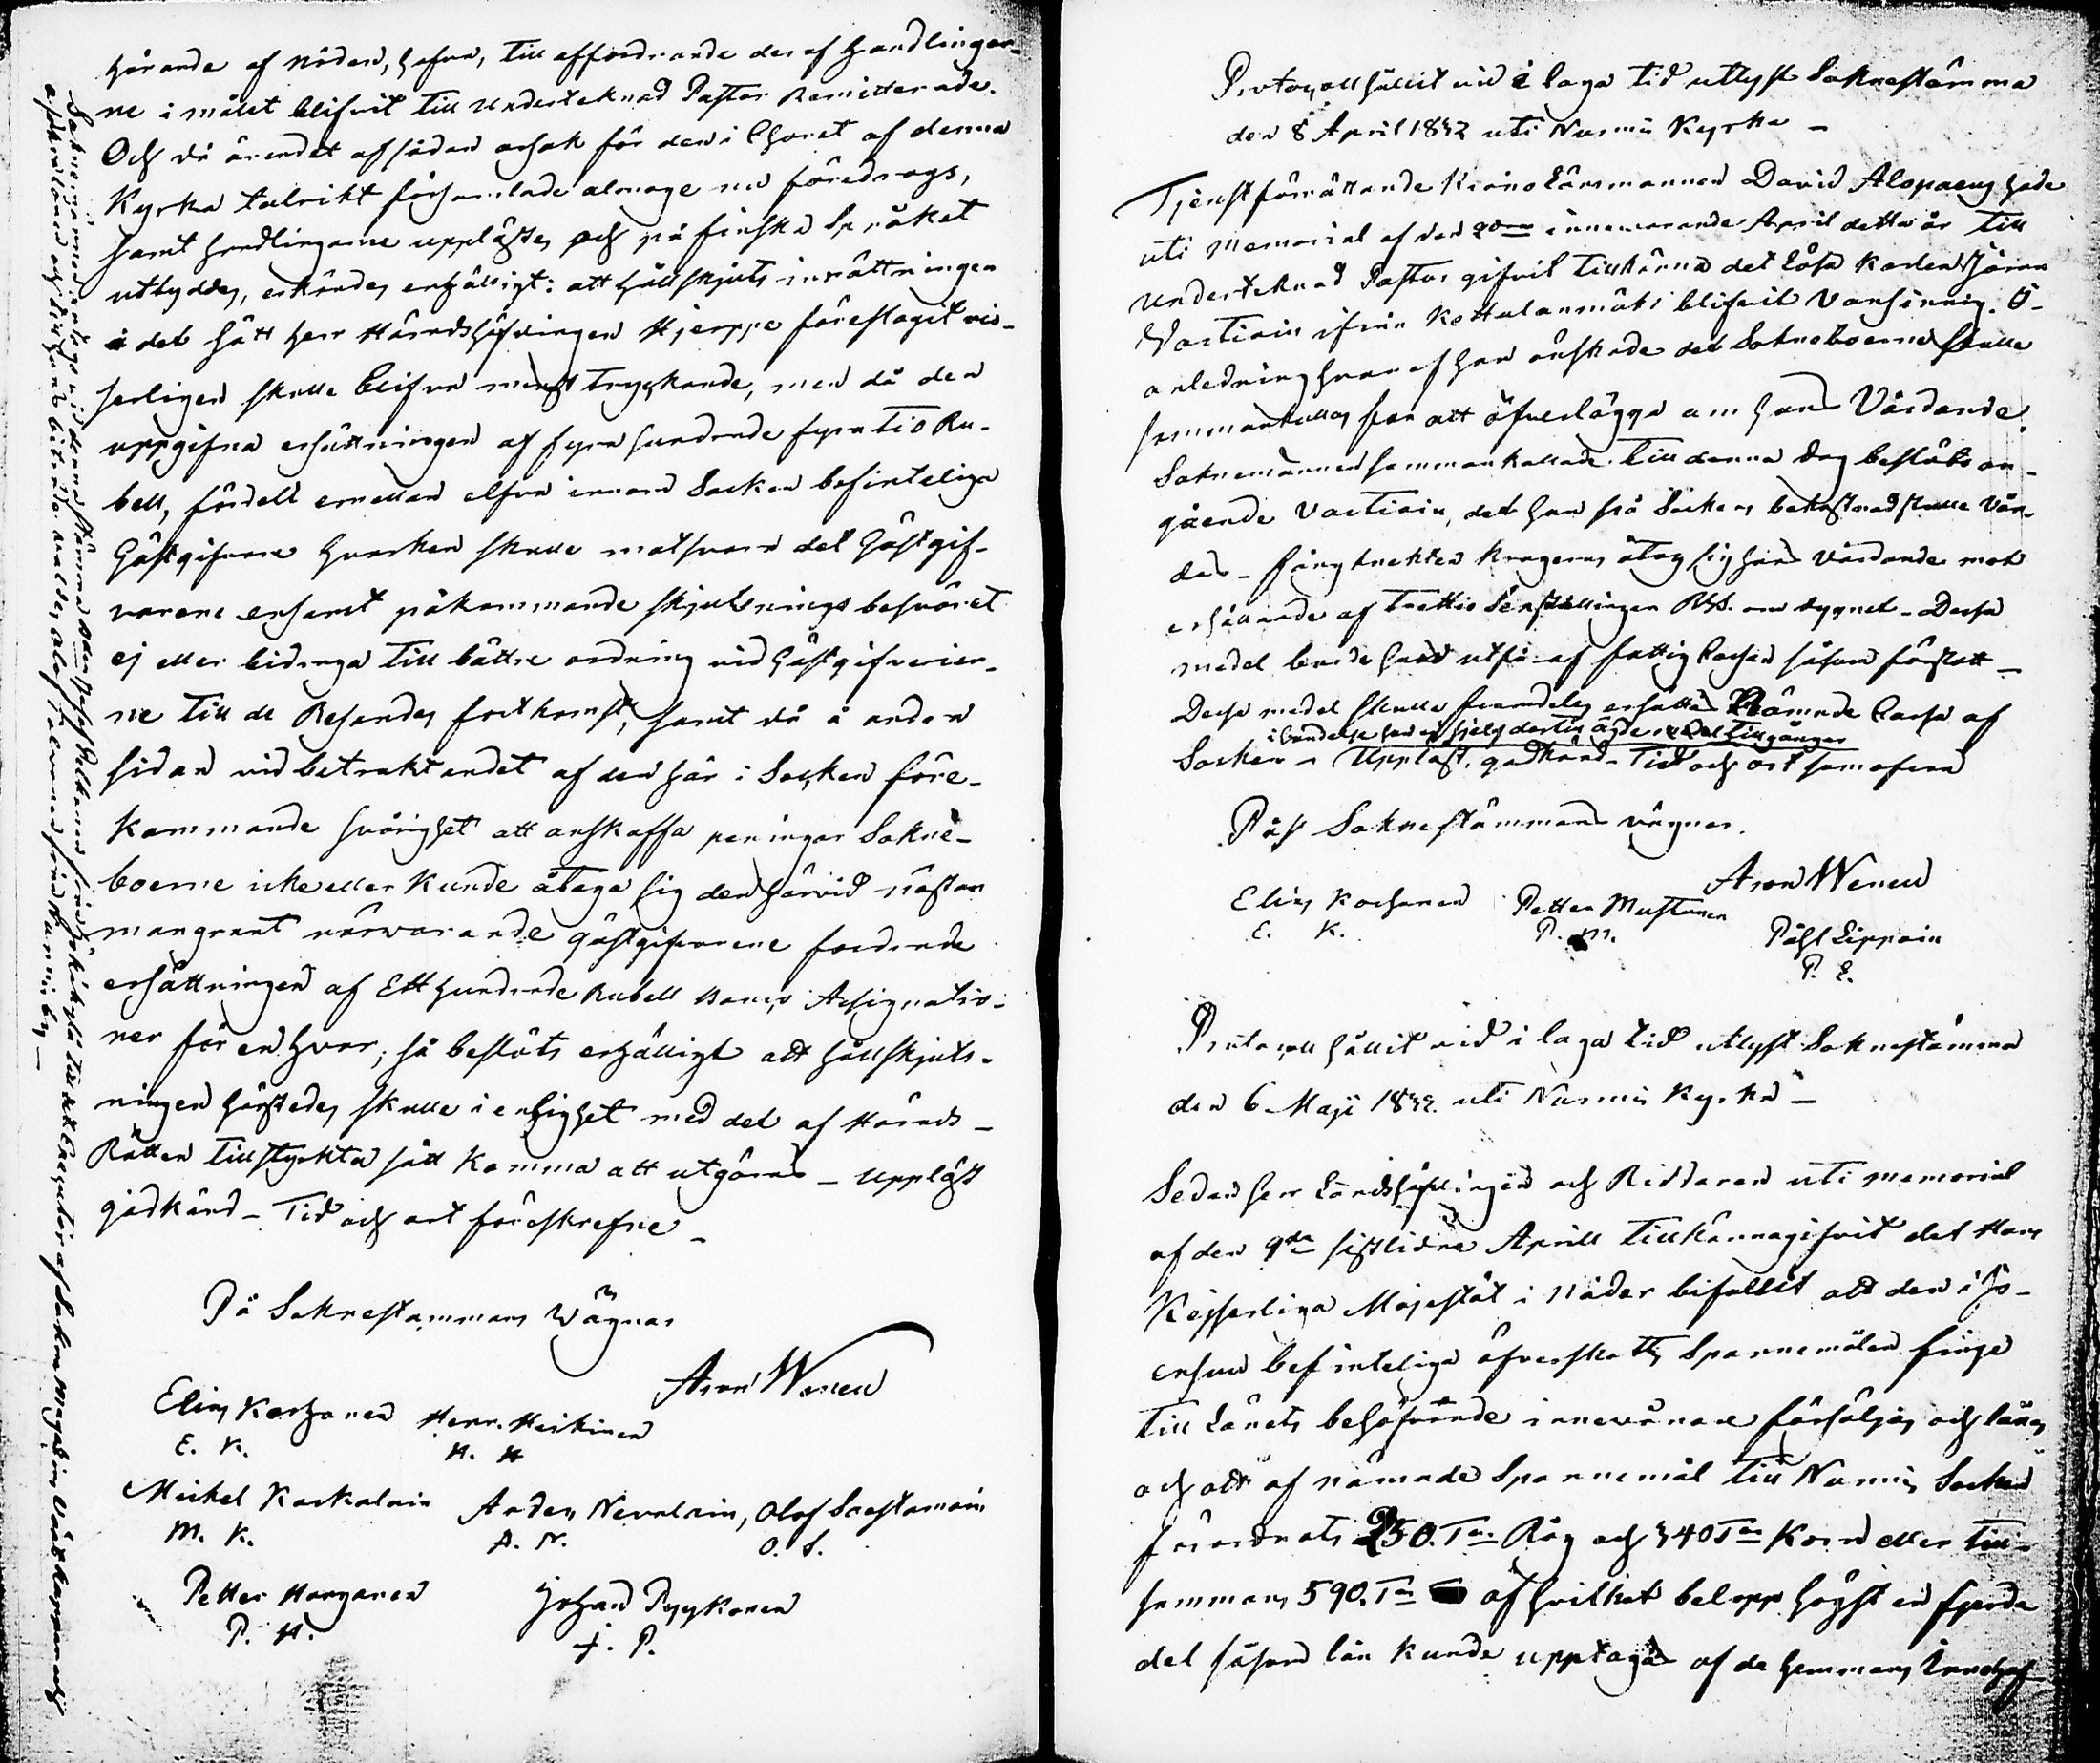 hörande af nöden, hafva, till affordrande deraf Handlingar-
ne i målet blifvit till Undertecknad Pastor Remitterade.
Och då ärendet af sådan orsak för den i Choret af denna
Kyrka talrikt församlade almoge nu föredrogs,
samt handlingarne upplästes och på finska Språket
uttyddes, erkändes enhälligt: att hållskjuts inrättningen
å det sätt Herr Häradshöfdingen Hjerppe föreslagit vis-
serligen skulle blifva minst tryckande, men då den
uppgifna ersättningen af fyra hundrade fyratio Ru-
bell, fördelt emellan elfva innom Socken befinteliga
Gästgifvare hvarken skulle motsvara det Gästgif-
varene ensamt påkommande skjutsnings besväret
ej eller bidraga till bättre ordning vid Gästgifverier-
ne till de Resandes fortkomst, samt då å andra
sidan vid betraktandet af den här i Socken före-
kommande svårighet att anskaffa peningar Sokne-
boerne icke eller kunde åtaga sig den härvid nästan
mangrant närvarande gästgifvarene fordrade
ersättningen af Ett hundrade Rubell Banco Assignatio-
ner för en hvar, så beslöts enhälligt att hållskjuts-
ningen härstedes skulle i enlighet med det af Härads-
Rätten tillstyrkta sätt komma att utgöras – Uppläst
godkänd – Tid och ort föreskrefne –
På Soknestammans Vägnar
Aron Wenell
Elias Korhonen Henr. Heikinen
E. K. H. H
Michel Karkalain Anders Nevalain, Olof Sarstamoin
M. K. A. N. O. S.
Petter Horganen Johan Pyykönen
P. H. J. P.
Protocoll hållit vid i laga tid utlyst Soknestämma
den 8 April 1832 uti Nurmis Kyrka –
Tjenstförrättande Krono Länsmannen David Alopaeus hade
uti Memorial af den 2dra innevarande April detta år till
Undertecknad Pastor gifvit tillkänna det Lösa karlen Göran
Vartiain ifrån Kottulanmäki blifvit Vansinnig. I
anledning hvaraf han önskade det Sokneboerne skulle
sammankallas för att öfverlägga om hans Vårdande.
Soknemännen sammankallade till denna dag beslöts an-
gående Vartiain, det han på Sockens bekostnad skulle Vår-
das – Fångknekten Krogerus åtog sig hans Vårdande mot
erhållande af trettio Sex skillingar RGS. om dygnet – Dessa
medel borde han utfå af fattig Cassan såsom förskott –
Dessa medel skulle framdeles ersättas Nämnde Cassa af
i händelse han ej sjelf dertill ägde nödel tillgångar
Socken – Uppläst, godkänd – Tid och ort som ofvan
På Soknestämmans vägnar.
Aron Wenell
Elias Korhonen Petter Mustonen
E. K. P. M. Påhl Lippain
P. L.
Protocoll hållit vid i laga tid utlyst Soknestämma
den 6 Maji 1832. uti Nurmis Kyrka –
Sedan Herr Landshöfdingen och Riddaren uti memorial
af den 9de sistlidne Aprill tillkännagifvit det Hans
Kejserliga Majestät i Nåder bifallit att den i Jo-
ensuu befinteliga öfverskotts Spannemålen finge
till Länets behöfvande innevånare försäljas och lånas
och att af nämnde Spannemål till Nurmis Socken
förordnats 250. Tnr Råg och 340 Tnr Korn eller till-
sammans 590. Tnr af hvilket belopp högst en fjerde
del såsom lån kunde upptagas af de hemmans Innehaf-